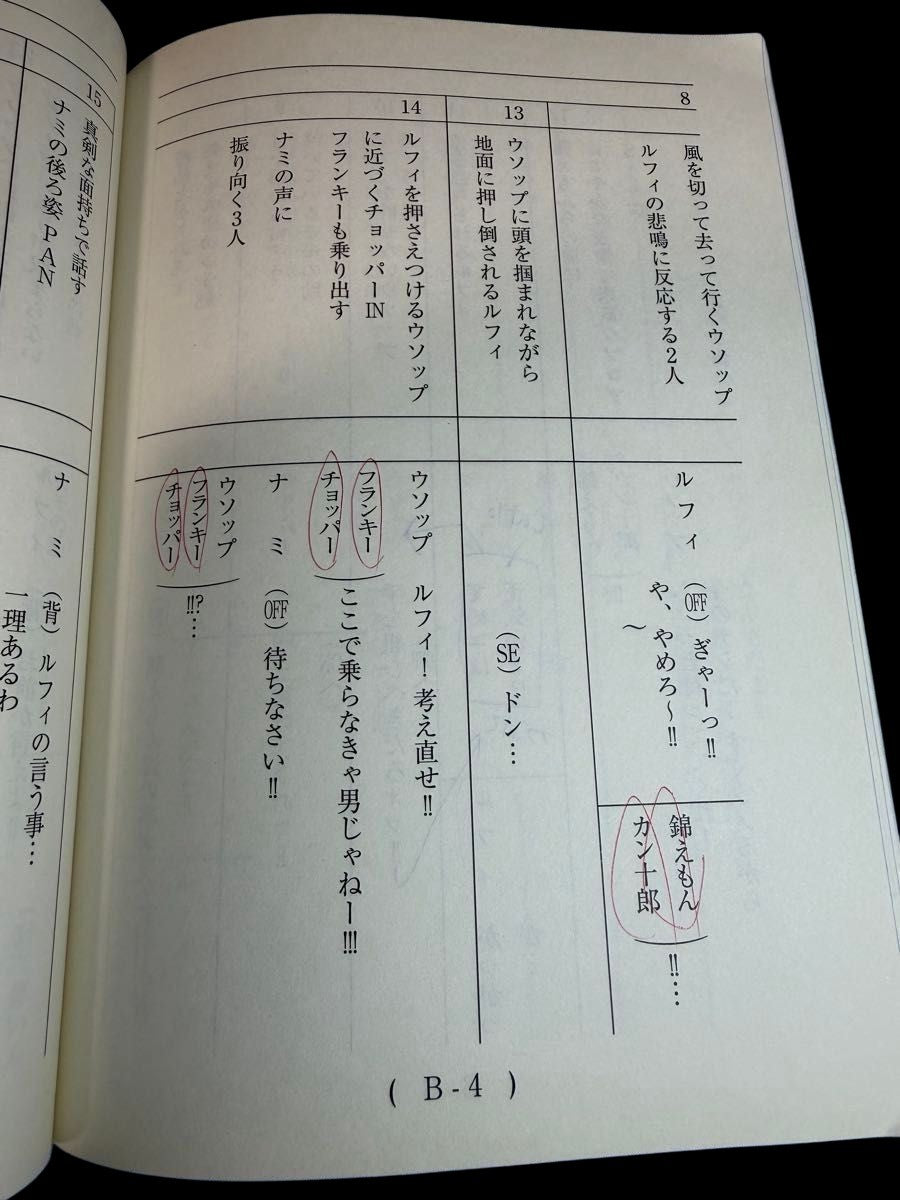 8
風を切って去って行くウソップ
ルフィの悲鳴に反応する2人
ルフィ (OFF) ぎゃーっ!!
や、やめろ〜!!
〜
錦えもん
カン十郎
!!…
13
ウソップに頭を掴まれながら
地面に押し倒されるルフィ
(SE) ドン…
14
ルフィを押さえつけるウソップ
に近づくチョッパーIN
フランキーも乗り出す
ナミの声に
振り向く3人
ウソップ ルフィ!考え直せ!!
フランキー
チョッパー
ここで乗らなきゃ男じゃねー!!!
ナミ (OFF) 待ちなさい!!
ウソップ
フランキー
チョッパー
!!?…
(B-4)
15
真剣な面持ちで話す
ナミの後ろ姿PAN
ナミ (背) ルフィの言う事…
一理あるわ